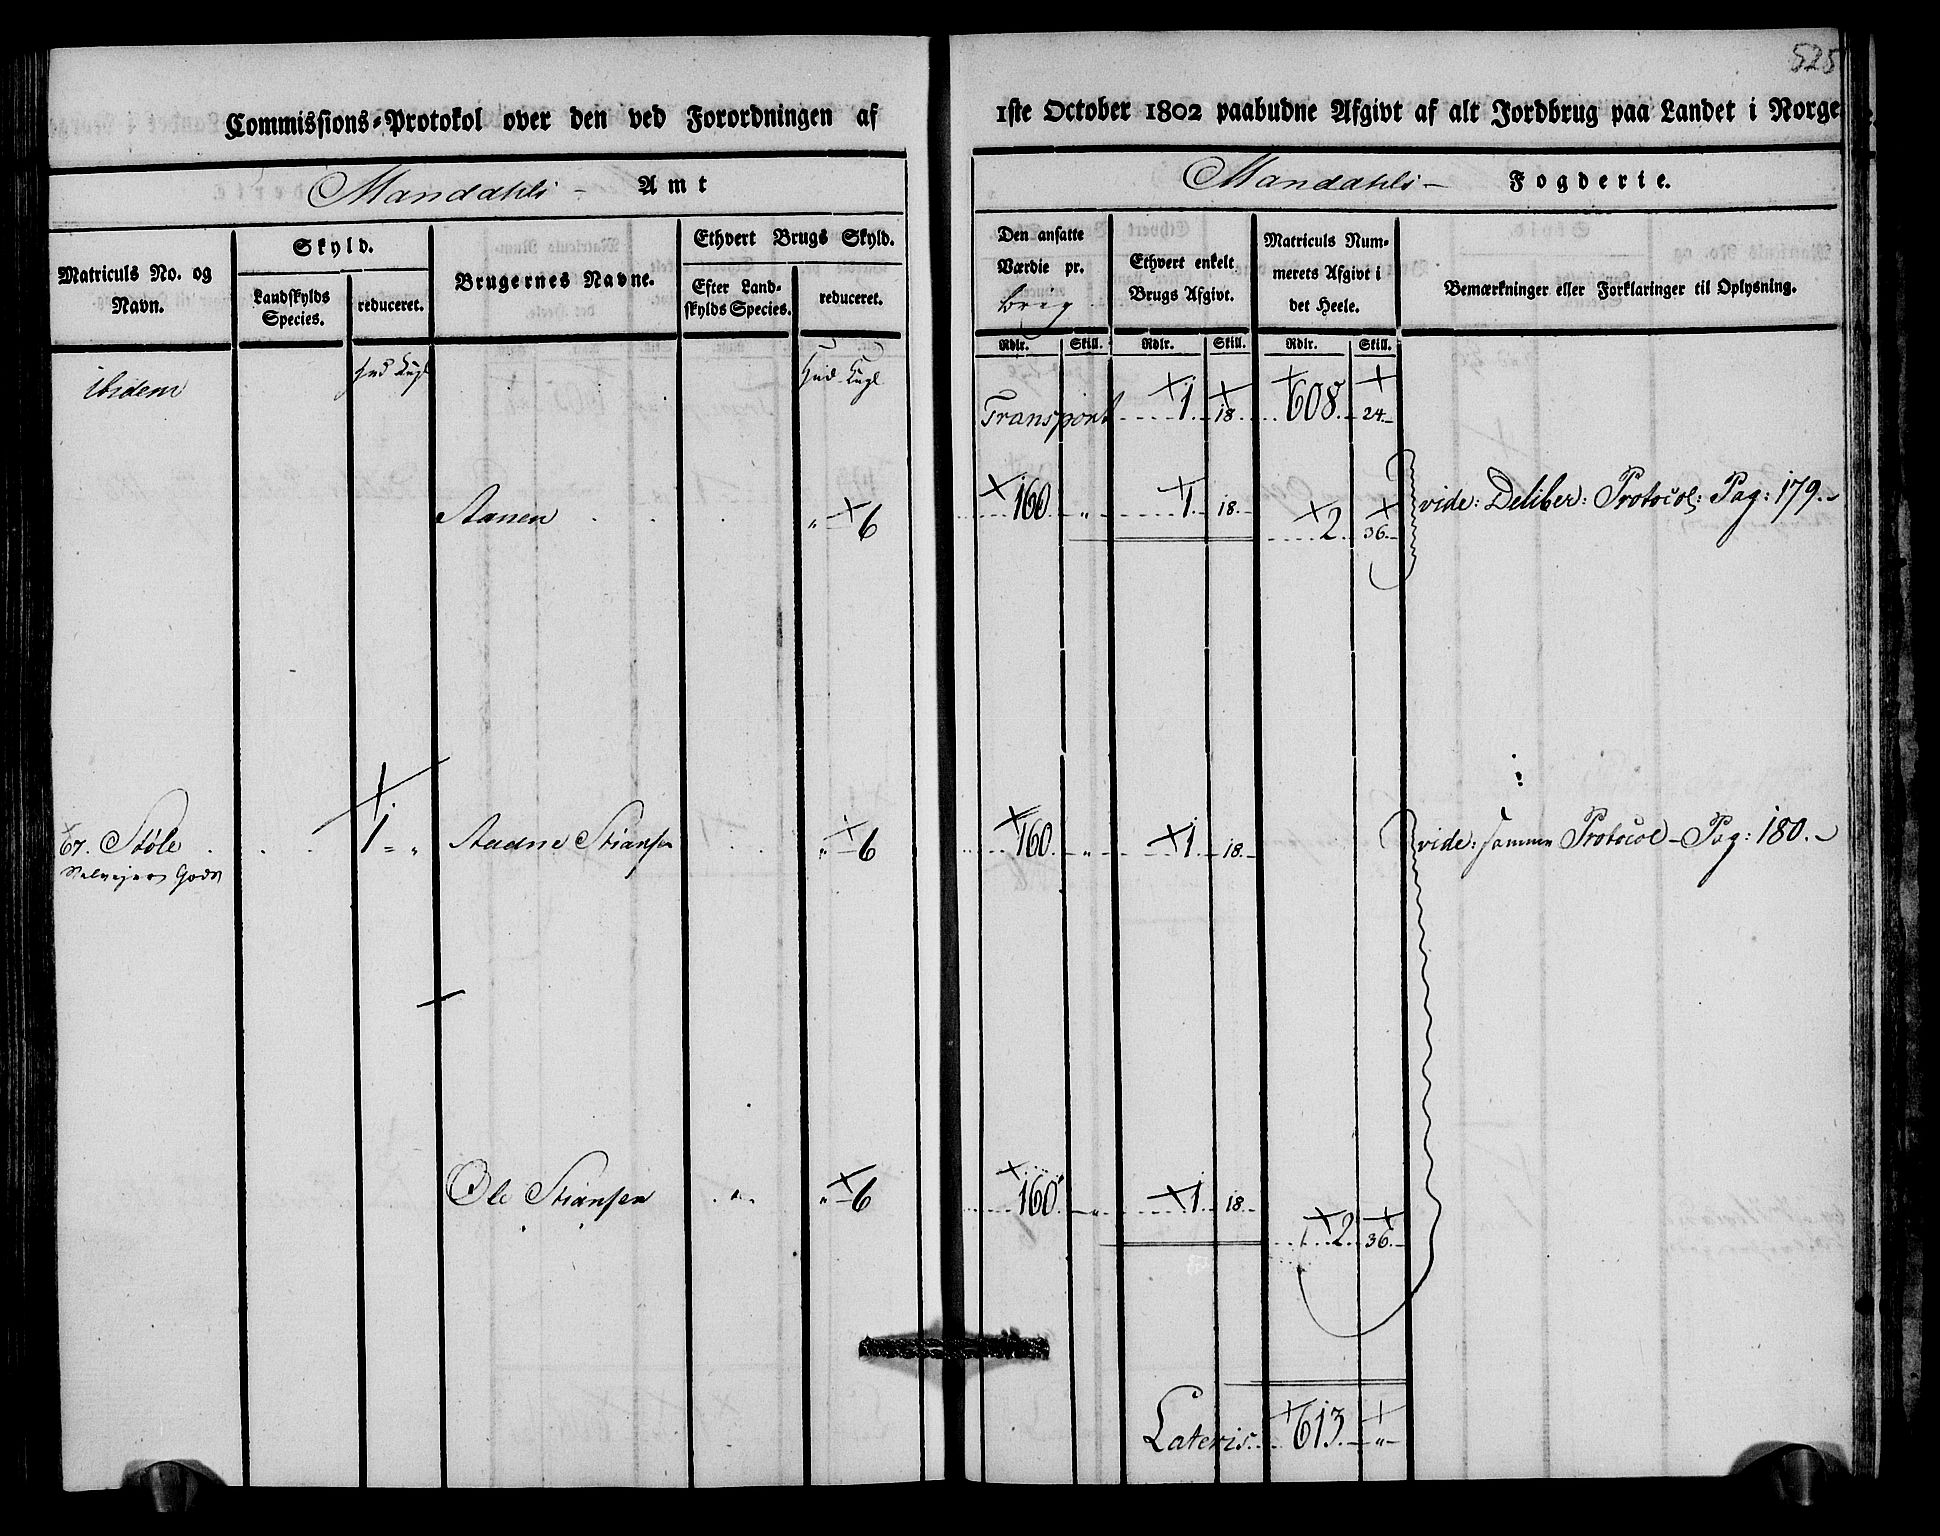 525
Commissions-Protokol over den ved Forordningen af 1ste October 1802 paabudne Afgivt af alt Jordbrug paa Landet i Norge
Mandahls - Amt
Mandahls - Fogderie.
Matriculs No. og Navn.
Skyld.
Landskylds Species.
reduceret.
Brugernes Navne.
Ethvert Brugs Skyld.
Efter Landskylds Species.
reduceret.
Den ansatte Værdie pr. brug
Ethvert enkelt Brugs Afgivt.
Matriculs Nummerets Afgivt i det Heele.
Bemærkninger eller Forklaringer til Oplysning.
Rdlr. Skill. Rdlr. Skill. Rdlr. Skill.
ibidem Hud Kugl Hud Kugl
Transport 1 18 608 24
Aanen " 6 160 " 1 18 vide: Deliber: Protocol: Pag: 179.
2 36
67. Støle 1 " Aadne Stiansen " 6 160 " 1 18 vide: samme Protocol - Pag: 180.
Selvejer Gods
Ole Stiansen " " 6 160 " 1 18
2 36
Lateris 613 "